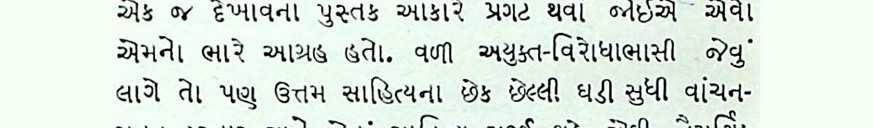 એક જ દેખાવના પુસ્તક આકારે પ્રગટ થવા જોઈએ એવો
એમનો ભારે આગ્રહ હતો. વળી અયુક્ત-વિરોધાભાસી જેવું
લાગે તો પણ ઉત્તમ સાહિત્યના છેક છેલ્લી ઘડી સુધી વાંચન-